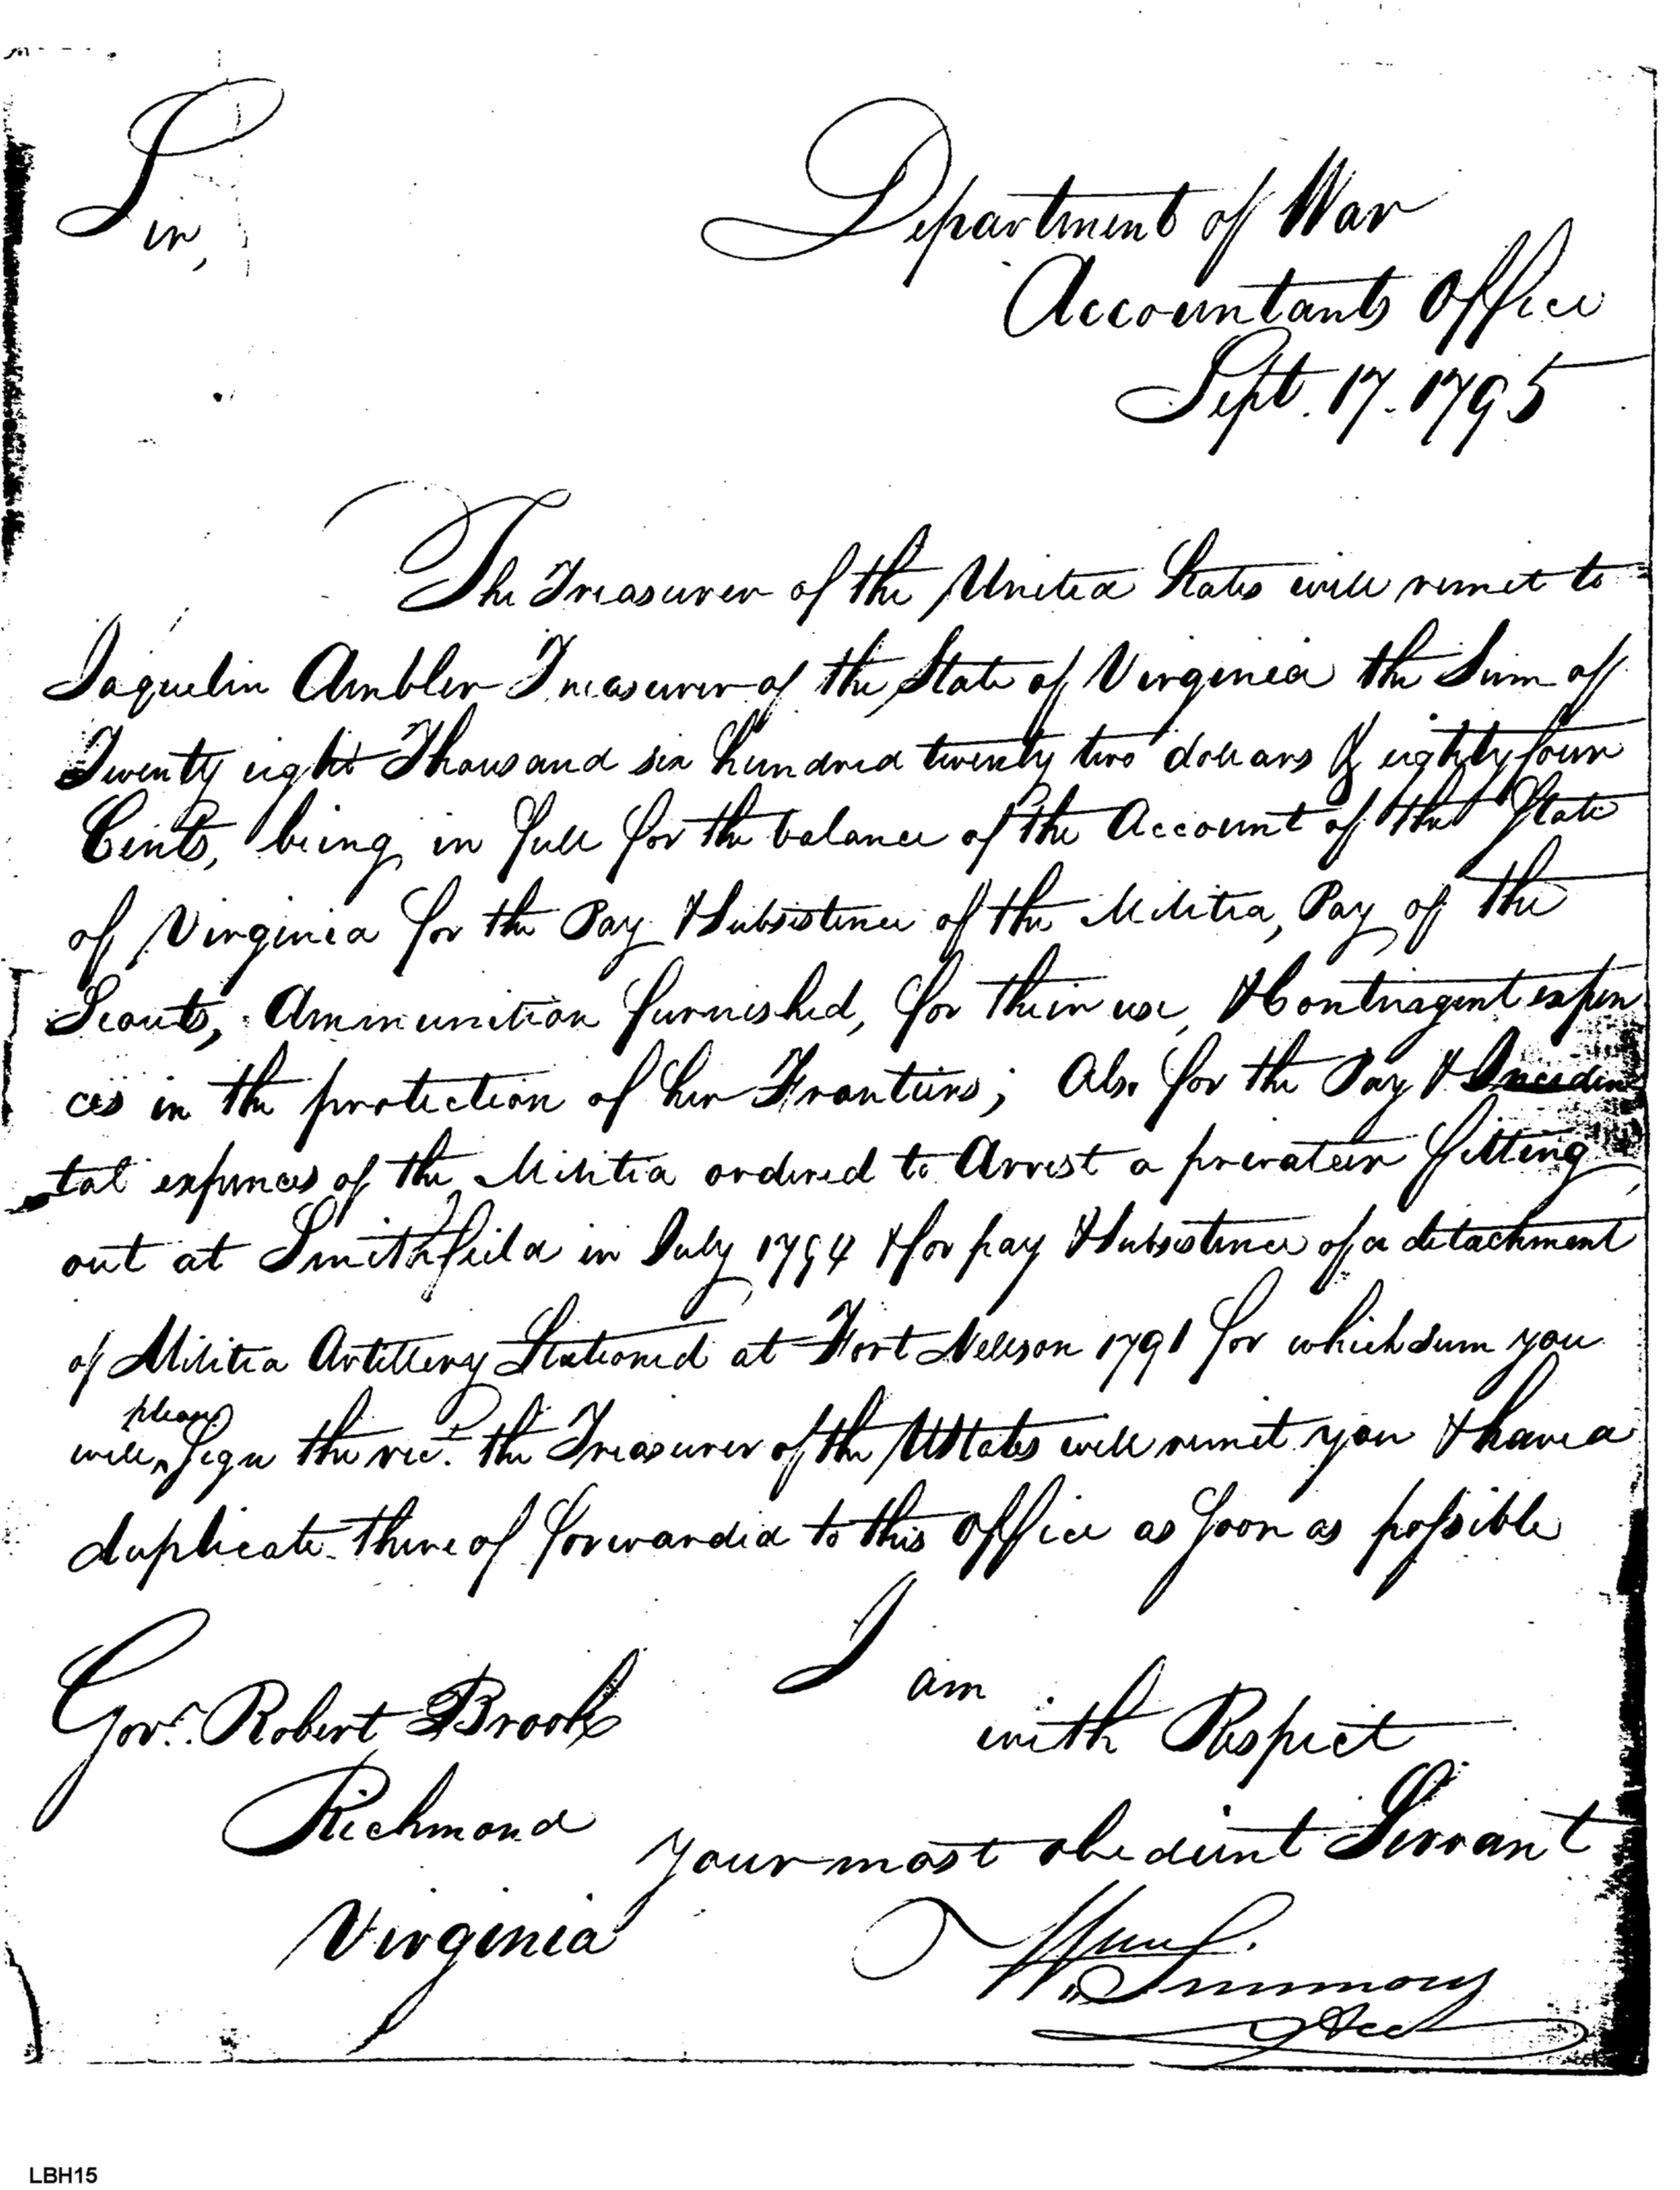 Sir,
Department of War
Accountants Office
Sept. 17. 1795
The Treasurer of the United States will remit to
Jaquelin Ambler Treasurer of the State of Virginia the Sum of
Twenty eight Thousand six hundred twenty two dollars & eighty four
Cents, being in full for the balance of the Account of the State
of Virginia for the Pay & Subsistence of the Militia, Pay of the
Scouts, Ammunition furnished, for their use, & Contingent expen
ces in the protection of her Frontiers; Also for the Pay & Inciden
tal expences of the Militia ordered to Arrest a privateer fitting
out at Smithfield in July 1794 & for pay & Subsistence of a detachment
of Militia Artillery Stationed at Fort Nelson 1791 for which sum you
please
will ^ Sign the rect. the Treasurer of the UStates will remit you & have a
duplicate thereof forwarded to this Office as soon as possible
I am
with Respect
Your most obedient Servant
Govr. Robert Brooke
Richmond
Virginia
Wm Simmons
Acct
LBH15